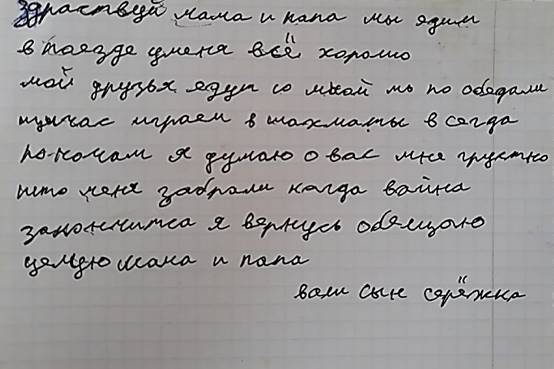 здраствуй мама и папа мы едим
в поезде уменя всё хорошо
мой друзья едут со мной мы по обедали
щичас играем в шахматы в сегда
по-ночам я думаю о вас мне грустно
што меня забрали когда вайна
закончитса я вернусь обещаю
целую мама и папа
ваш сын серёжка